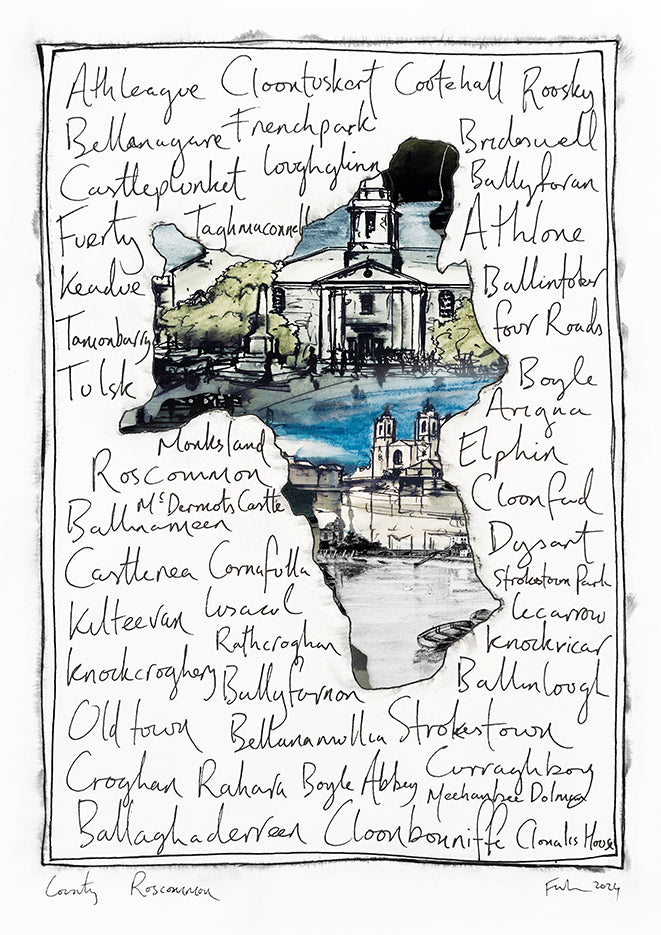 Athleague Cloontuskert Cootehall Roosky
Bellanagare Frenchpark Brideswell
Castleplunket Loughglinn Ballyforan
Fuerty Taghmaconnell Athlone
Keadue Ballintober
Tarmonbarry Four Roads
Tulsk Boyle
Arigna
Monksland Elphin
Roscommon Cloonfad
McDermots Castle
Ballinameen Dysart
Castlerea Cornafulla Strokestown Park
Kilteevan Lisacul Lecarrow
Rathcroghan Knockvicar
Knockcroghery Ballyfarnon Ballinlough
Old town Bellanamullia Strokestown
Croghan Rahara Boyle Abbey Curraghboy
Ballaghaderreen Cloonbonniffe Clonalis House
County Roscommon 2024